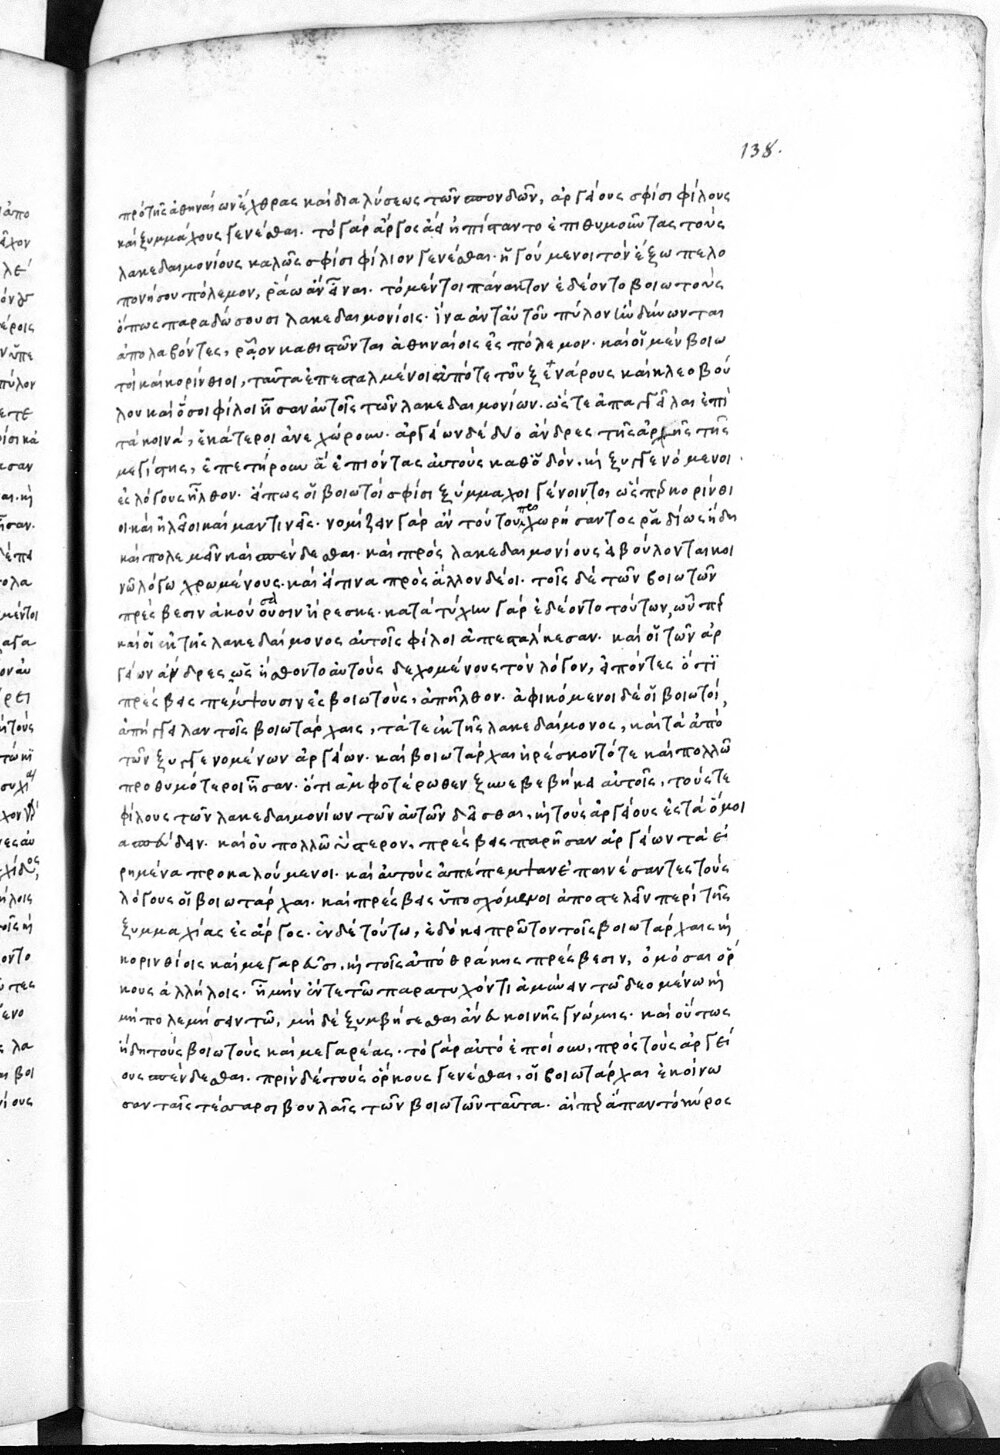 πρὸ τῆς ἀθηναίων ἔχθρας καὶ διαλύσεως τῶν σπονδῶν, ἀργείους σφίσι φίλους
καὶ ξυμμάχους γενέσθαι. τὸ γὰρ ἄργος ἀεὶ ἠπίσταντο ἐπιθυμοῦντας τοὺς
λακεδαιμονίους καλῶς σφίσι φίλιον γενέσθαι· ἡγούμενοι τὸν ἔξω πελο
πονήσου πόλεμον, ῥάω ἂν εἶναι. τὸ μέντοι πάνακτον ἐδέοντο βοιωτοὺς
ὅπως παραδώσουσι λακεδαιμονίοις· ἵνα ἀντ' αὐτοῦ πύλον ἢν δύνωνται
ἀπολαβόντες, ῥᾷον καθιστῶνται ἀθηναίοις ἐς πόλεμον. καὶ οἱ μὲν βοιω
τοὶ καὶ κορίνθιοι, ταῦτα ἐπεσταλμένοι ἀπό τε τοῦ ξενάρους καὶ κλεοβού
λου καὶ ὅσοι φίλοι ἦσαν αὐτοῖς τῶν λακεδαιμονίων. ὥστε ἀπαγγεῖλαι ἐπὶ
τὰ κοινά, ἑκάτεροι ἀνεχώρουν. ἀργείων δὲ δύο ἄνδρες τῆς ἀρχῆς τῆς
μεγίστης, ἐπετήρουν ἀπιόντας αὐτοὺς καθ' ὁδόν. καὶ ξυγγενόμενοι
ἐς λόγους ἦλθον. εἴπως οἱ βοιωτοὶ σφίσι ξύμμαχοι γένοιντο, ὥσπερ κορίνθι
οι καὶ ἠλεῖοι καὶ μαντινεῖς. νομίζειν γὰρ ἂν τούτου προχωρήσαντος ῥαδίως ἤδη
καὶ πολεμεῖν καὶ σπένδεσθαι. καὶ πρὸς λακεδαιμονίους εἰ βούλονται κοι
νῷ λόγω χρωμένους. καὶ εἴ τινα πρὸς ἄλλον δέοι. τοῖς δὲ τῶν βοιωτῶν
πρέσβεσιν ἀκούουσιν ἤρεσκε. κατὰ τύχην γὰρ ἐδέοντο τούτων, ὧνπερ
καὶ οἱ ἐκ τῆς λακεδαίμονος αὐτοῖς φίλοι ἀπεστάλκεσαν. καὶ οἱ τῶν ἀρ
γείων ἄνδρες, ὡς ἤσθοντο αὐτοὺς δεχομένους τὸν λόγον, εἰπόντες ὅτι
πρέσβεις πέμψουσιν ἐς βοιωτούς, ἀπῆλθον. ἀφικόμενοι δὲ οἱ βοιωτοί,
ἀπήγγειλαν τοῖς βοιωτάρχαις, τά τε ἐκ τῆς λακεδαίμονος, καὶ τὰ ἀπὸ
τῶν ξυγγενομένων ἀργείων. καὶ βοιωτάρχαι ἠρέσκοντό τε καὶ πολλῷ
προθυμότεροι ἦσαν. ὅτι ἀμφοτέρωθεν ξυνεβεβήκει αὐτοῖς, τούς τε
φίλους τῶν λακεδαιμονίων τῶν αὐτῶν δεῖσθαι, καὶ τοὺς ἀργείους ἐς τὰ ὅμοι
α σπεύδειν. καὶ οὐ πολλῷ ὕστερον, πρέσβεις παρῆσαν ἀργείων τὰ εἰ
ρημένα προκαλούμενοι. καὶ αὐτοὺς ἀπέπεμψαν ἐπαινέσαντες τοὺς
λόγους οἱ βοιωτάρχαι. καὶ πρέσβεις ὑποσχόμενοι ἀποστελεῖν περὶ τῆς
ξυμμαχίας ἐς ἄργος. ἐν δὲ τούτω, ἐδόκει πρῶτον τοῖς βοιωτάρχαις καὶ
κορινθίοις καὶ μεγαρεῦσι, καὶ τοῖς ἀπὸ θράκης πρέσβεσιν, ὀμόσαι ὅρ
κους ἀλλήλοις. ἦ μὴν ἔν τε τῷ παρατυχόντι ἀμυνεῖν τῷ δεομένω καὶ
μὴ πολεμήσειν τῷ, μὴ δὲ ξυμβήσεσθαι ἄνευ κοινῆς γνώμης. καὶ οὕτως
ἤδη τοὺς βοιωτοὺς καὶ μεγαρέας. τὸ γὰρ αὐτὸ ἐποίουν, πρὸς τοὺς ἀργεί
ους σπένδεσθαι. πρὶν δὲ τοὺς ὅρκους γενέσθαι, οἱ βοιωτάρχαι ἐκοίνω
σαν ταῖς τέσσαρσι βουλαῖς τῶν βοιωτῶν ταῦτα. αἵπερ ἅπαν τὸ κύρος
138.